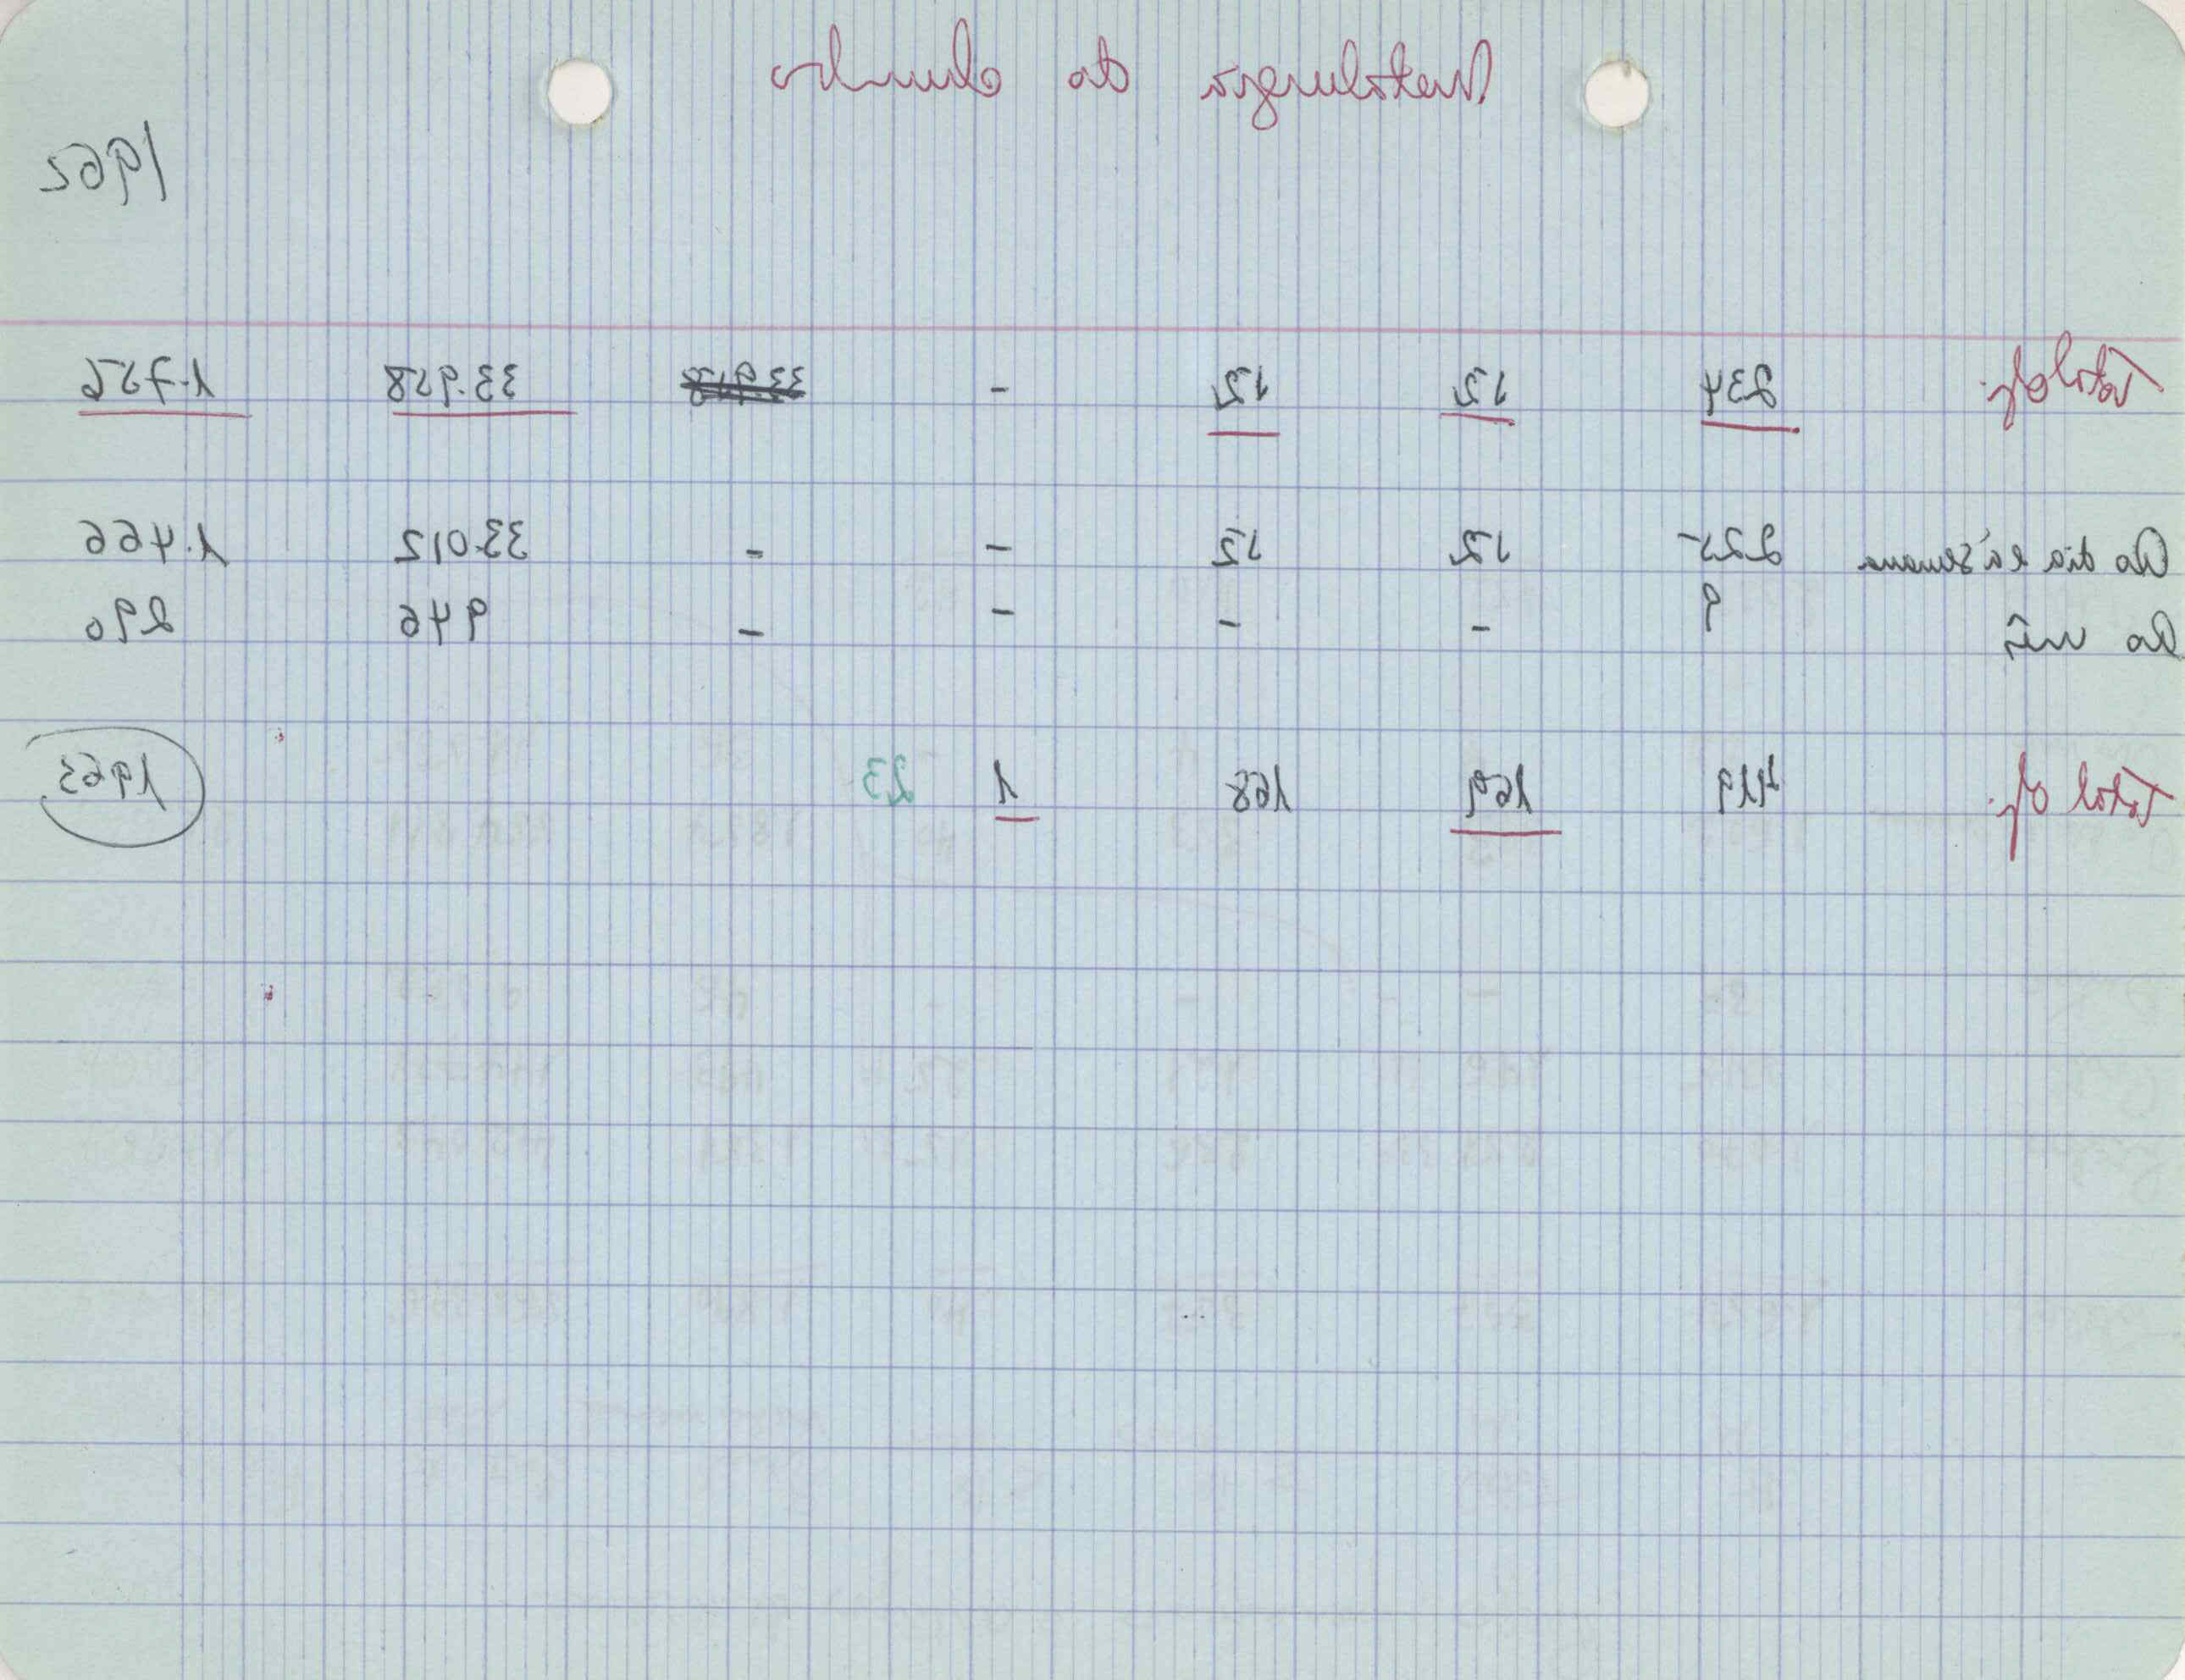 Metalurgia do chumbo
1962
Total of. 234 12 12 - 33.958 33.958 1.756
Ao dia e à semana 225 12 12 - - 33.012 1.466
Ao mês 9 - - - - 946 290
Total of. 419 169 168 1 23 1963